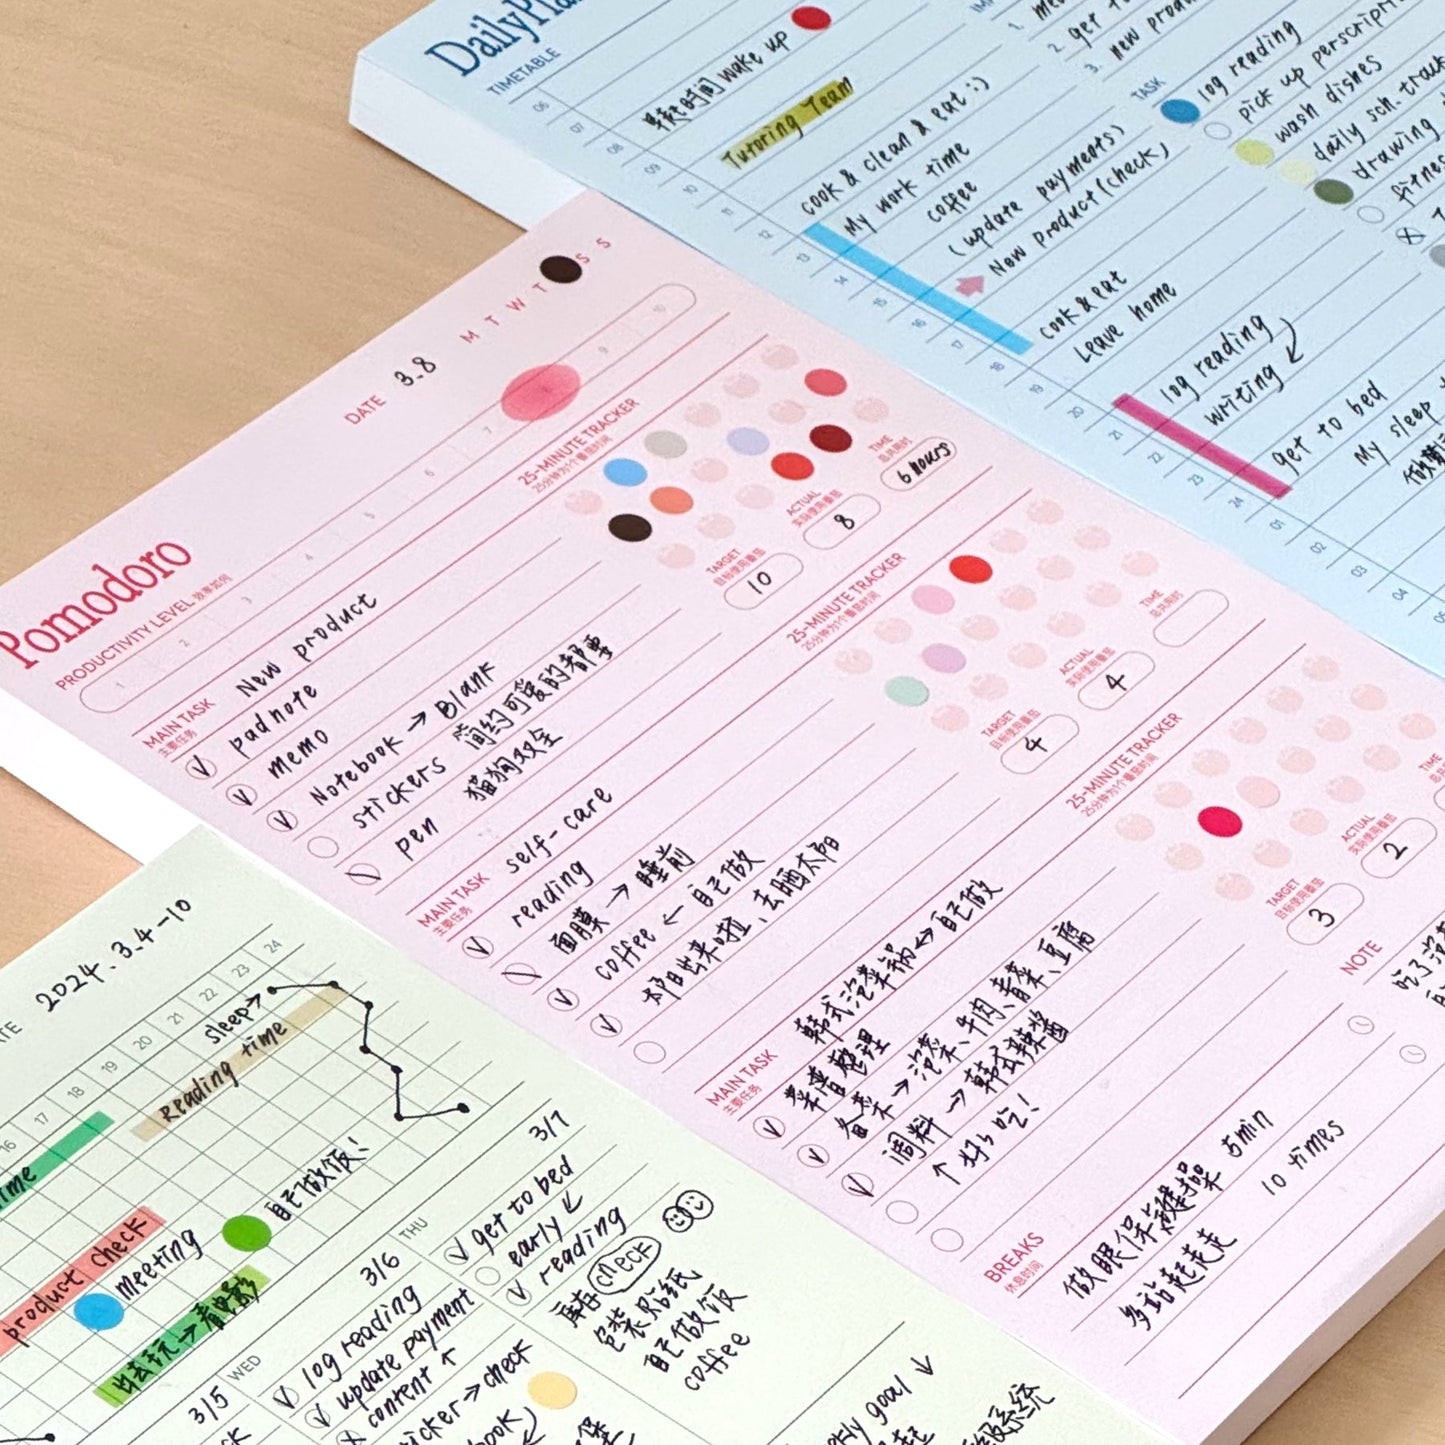 DailyPla
TIMETABLE
06
07
wake up
08
09
Tutoring Team
10
11
12
cook & clean & eat :)
13
My work time
14
coffee
15
(update payments)
16
New product (check)
17
18
cook & eat
19
Leave home
20
21
log reading
22
writing
23
24
get to bed
01
My sleep
02
03
04
1.
2. get
3. new produ
TASK
log reading
pick up perscripti
wash dishes
daily sch. track
drawing
fitnes
Pomodoro
DATE 3.8 M T W T S S
PRODUCTIVITY LEVEL 效率如何
1 2 3 4 5 6 7 9 10
MAIN TASK New product
主要任务
padnote
memo
Notebook → Blank
stickers 简约可爱的都要
pen 猫狗双全
25-MINUTE TRACKER
25分钟为1个番茄时间
TARGET
目标使用番茄
10
ACTUAL
实际使用番茄
8
TIME
总共用时
6 hours
MAIN TASK self-care
主要任务
reading
面膜 → 睡前
coffee ← 自己做
太阳出来啦、去晒太阳
25-MINUTE TRACKER
25分钟为1个番茄时间
TARGET
目标使用番茄
4
ACTUAL
实际使用番茄
4
TIME
总共用时
MAIN TASK 韩式泡菜锅 ↔ 自己做
主要任务
菜谱整理
备菜 → 泡菜、牛肉、青菜、豆腐
调料 → 韩式辣酱
↑ 好好吃！
25-MINUTE TRACKER
25分钟为1个番茄时间
TARGET
目标使用番茄
3
ACTUAL
实际使用番茄
2
TIME
BREAKS
休息时间
做眼保健操 5min
多站起走走 10 times
NOTE
吃了
ATE 2024.3.4-10
16 17 18 19 20 21 22 23 24
sleep→
Reading time
ime
product check
meeting
自己做饭！
出去玩→看电影
3/5 WED
3/6 THU
log reading
update payment
content ↑
icker → check
book)
3/7
get to bed
early
reading
库存 check
包装贴纸
自己做饭
coffee
kly goal ↓
级系统